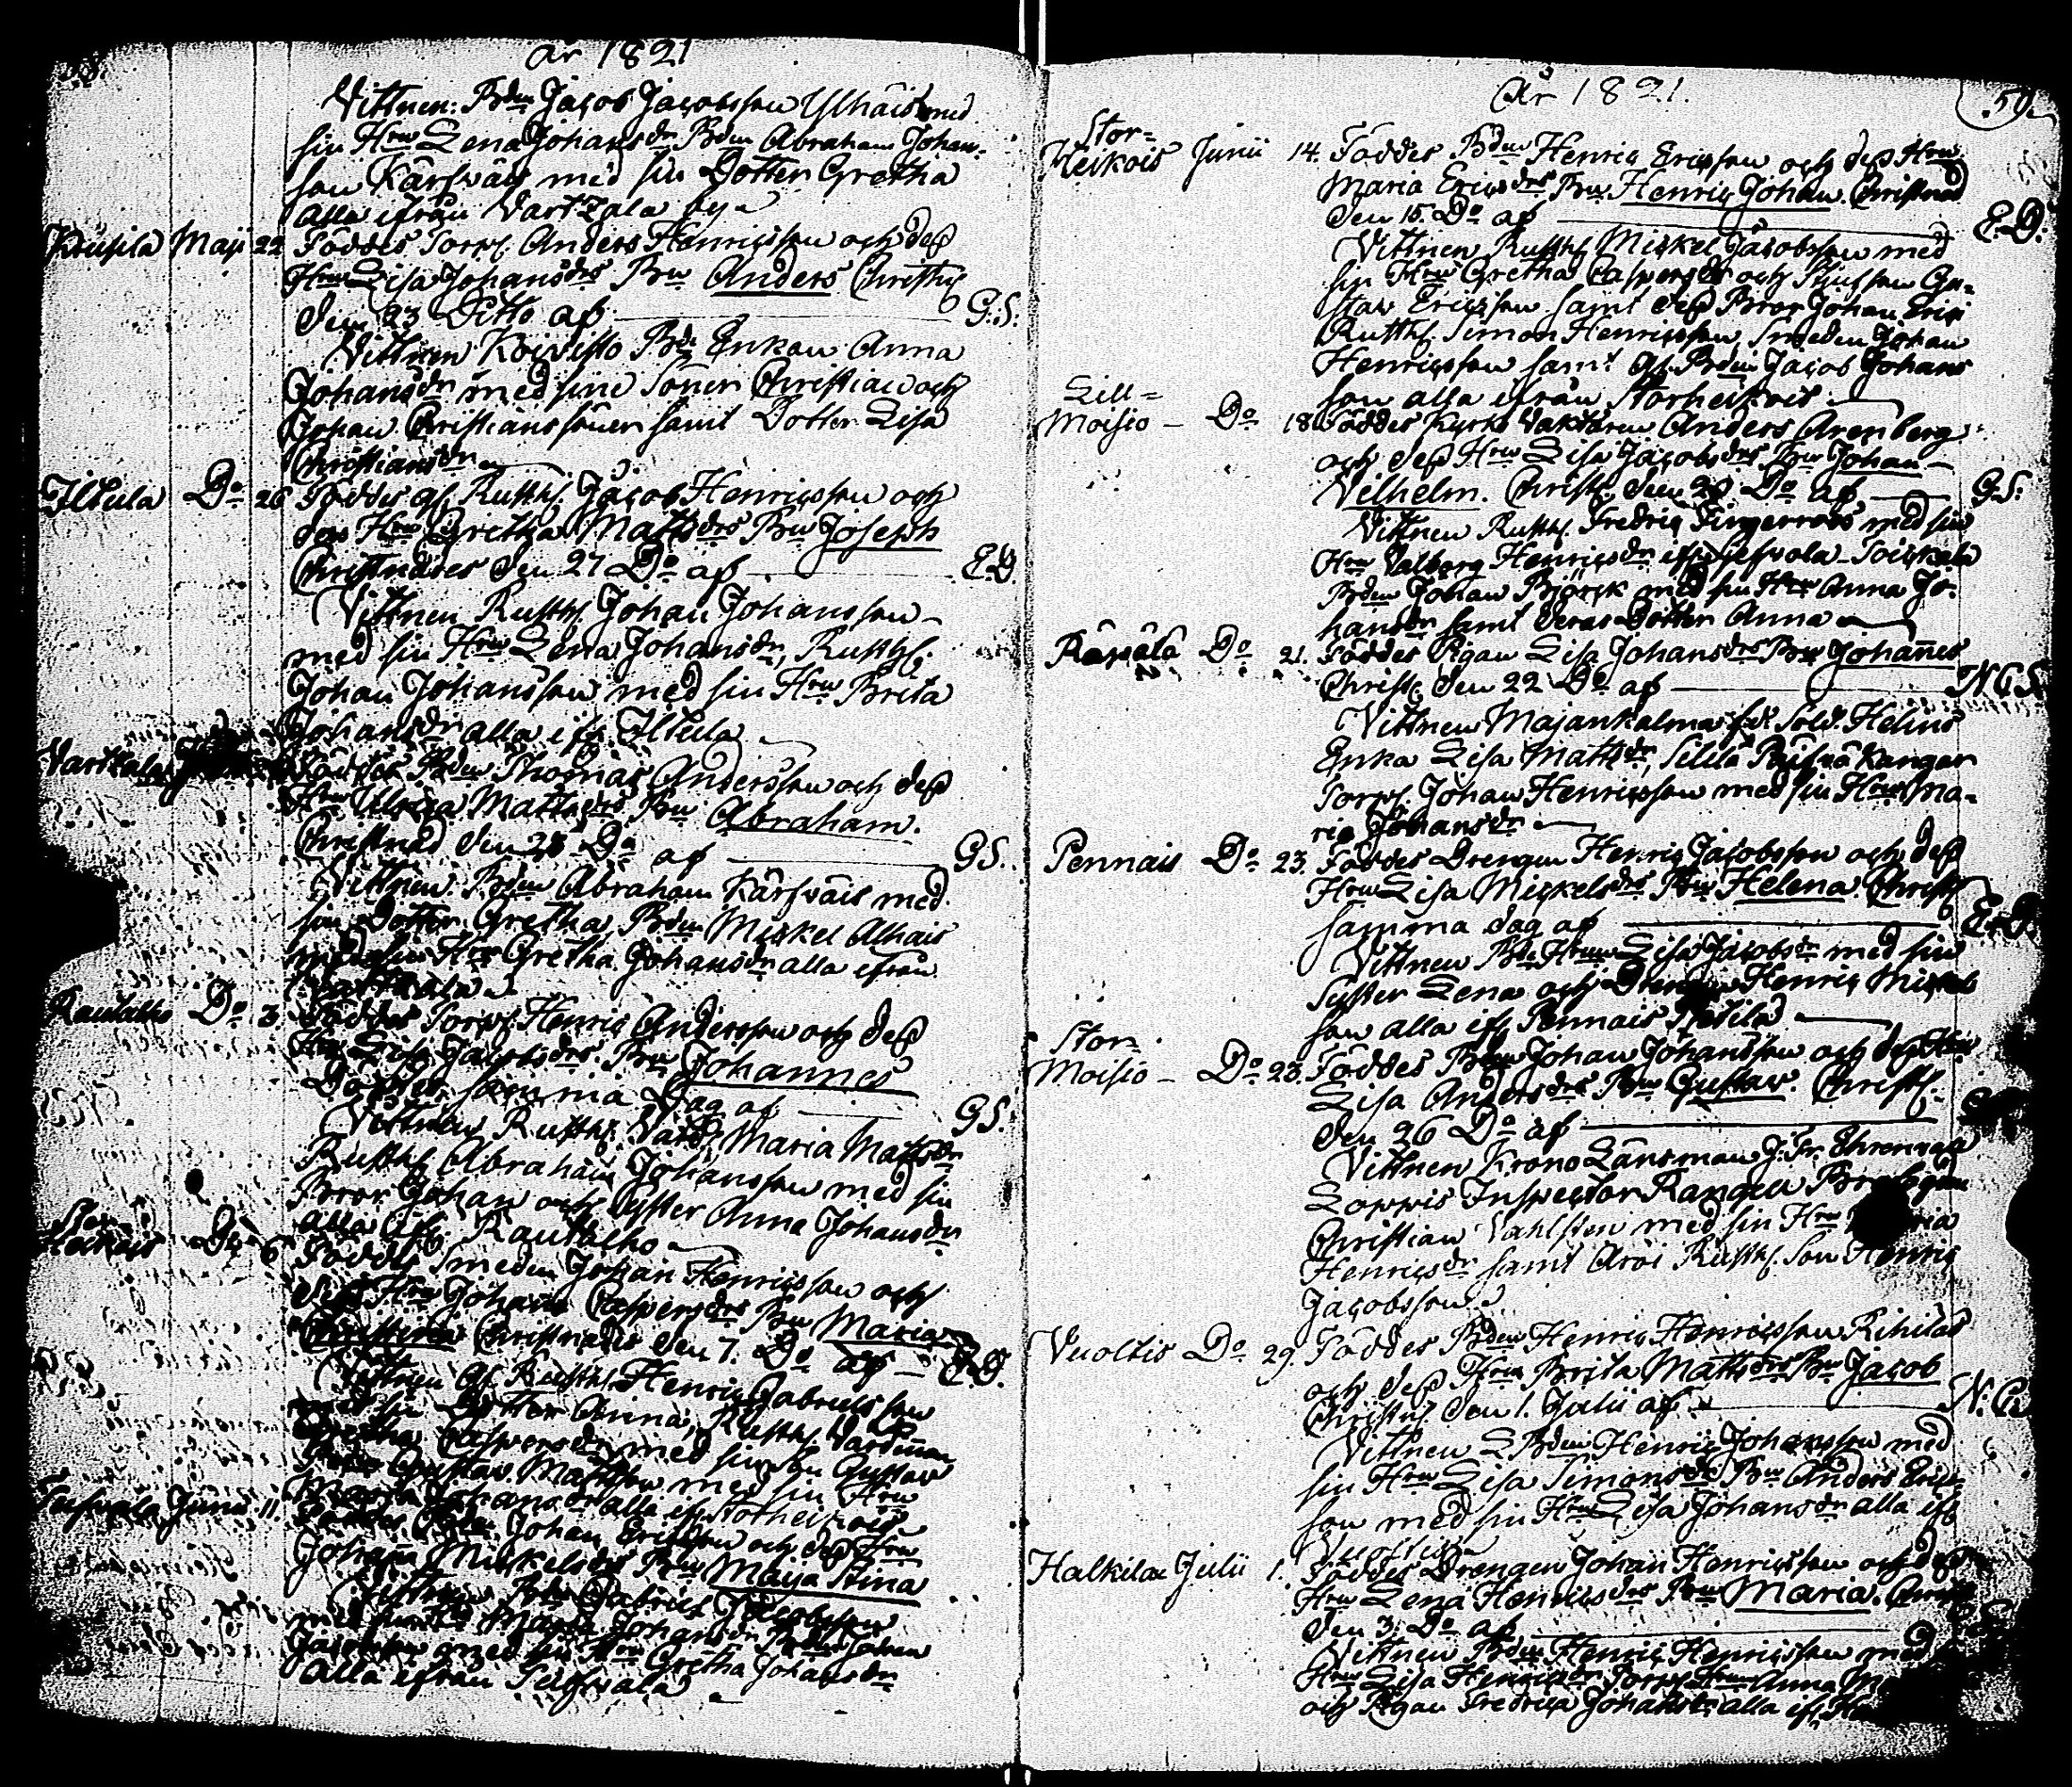 År 1821
Vittnen: Bden Jacob Jacobsson Ylhäis med
sin Hru Lena Johansdr Bden Abraham Johan-
son Kärsväis med sin Dotter Gretha
alla ifrån Vartzala by
Maji 22 Föddes Torp. Anders Henricsson och dess
Hru Lisa Johansdrs Bn Anders Christn
den 23 Ditto af G.S.
Vittnen Koivisto Bde Enkan Anna
Johansdr med sine Söner Christian och
Johan Christianssöner samt Dotter Lisa
Christiansdr
Iltula Do 26 Föddes gl. Rusth. Jacob Henricsson och
dess Hru Gretha Mattsdrs Bn Joseph
Christnades den 27 Do af E.D.
Vittnen Rusth. Johan Johansson
med sin Hru Lena Johansdr, Rusth.
Johan Johansson med sin Hru Brita
Johansdr alla ifr. Iltula
Vartzala Föddes Bden Thomas Andersson och dess
Hru Ulrica Mattsdrs Bn Abraham.
Christnad den 28 Do af G.S.
Vittnen: Bden Abraham Kärsväis med
sin Dotter Gretha Bden Mickel Alhais
med sin Hru Gretha Johansdr alla ifrån
Vartzala
Rautalho Do 3 Föddes Torp. Henric Andersson och dess
Hru Lisa Jacobsdrs Bn Johannes
Döptes samma Dag af G.S.
Vittnen Rusth. Värd. Maria Mattsdr
Rusth. Abraham Johansson med sin
Bror Johan och Syster Anna Johansdr
alla ifr. Rautalho
Stor-
Heikois Do 6 Föddes Smeden Johan Henricsson och
dess Hru Johana Caspersdrs Bn Maria
Christina Christnades den 7. Do af E.D.
Vittnen gl. Rusth. Henric Gabrielsson
med sin Dotter Anna, Rusth. Värdinnan
Gretha Caspersdr med sin Son Gustav
Gustav Mattsson med sin Hru
Maria Johansdr alla ifr. Storheikois
Junii 11. Föddes Bden Johan Ericsson och dess Hru
Johana Mickelsdrs Bn Maija Stina
Vittnen Bden Gabriel Jacobsson
med sin Hru Maria Johansdr Bden Johan
Jacobsson med sin Hru Gretha Johansdr
alla ifrån
År 1821.
59.
Stor-
Heikois Junii 14. Föddes Bden Henric Ericsson och dess Hru
Maria Ericsdrs Bn Henric Johan. Christnad
den 15. Do af E.D.
Vittnen Rusth. Mickel Jacobsson med
sin Hru Gretha Caspersdr och Gu-
stav Ericsson samt dess Bror Johan Erics
Rusth. Simon Henricsson Smeden Johan
Henricsson samt gl. Bden Jacob Johans
son alla ifrån Storheikois
Lill-
Moisio - Do 18. Föddes Kyrko Vaktaren Anders Arenberg
och dess Hru Lisa Jacobsdrs Bn Johan
Vilhelm. Christ. den 20 Do af G.S.
Vittnen Rusth. Fredric Fingerroos med sin
Hru Valborg Henricsdr
Bden Johan Björck med sin Hru Anna Jo-
hansdr samt deras Dotter Anna
Räpälä Do 21. Föddes Pigan Lisa Johansdrs Bn Johannes
Christ. den 22 Do af N.C.S.
Vittnen Majankalma Sold. Helins
Enka Lisa Mattsdr,
Torp. Johan Henricsson med sin Hru Ma-
ria Johansdr
Pennais Do 23. Föddes Drengen Henric Jacobsson och dess
Hru Lisa Mickelsdrs Bn Helena. Christ.
samma dag af
Vittnen Bde Hrun Lisa Jacobsdr med sin
Syster Lena och Drengen Henric Mickels
son alla ifr. Pennais
Stor-
Moisio - Do 23. Föddes Bden Johan Johansson och dess Hru
Lisa Andersdrs Bn Gustav. Christ.
den 26 Do af
Vittnen Krono Länsman
Inspector
Christian Vahlsten med sin Hru
Henricsdr samt Rusth. Son Henric
Jacobsson
Vuoltis Do 29. Föddes Bden Henric Henricsson Rihilas
och dess Hru Brita Mattsdrs Bn Jacob
Christn. den 1. Julii af N.C.
Vittnen Bden Henric Johansson med
sin Hru Lisa Simonsdr Bden Anders Eric-
son med sin Hru Lisa Johansdr alla ifr.
Vuoltis
Halkilax Julii 1. Föddes Drengen Johan Henricsson och dess
Hru Lena Henricsdrs Bn Maria.
den 3. Do af
Vittnen Bden Henric Henricsson med
Hru Lisa Henricsdr Anna
och Pigan Fredrica Johansdr alla ifr.